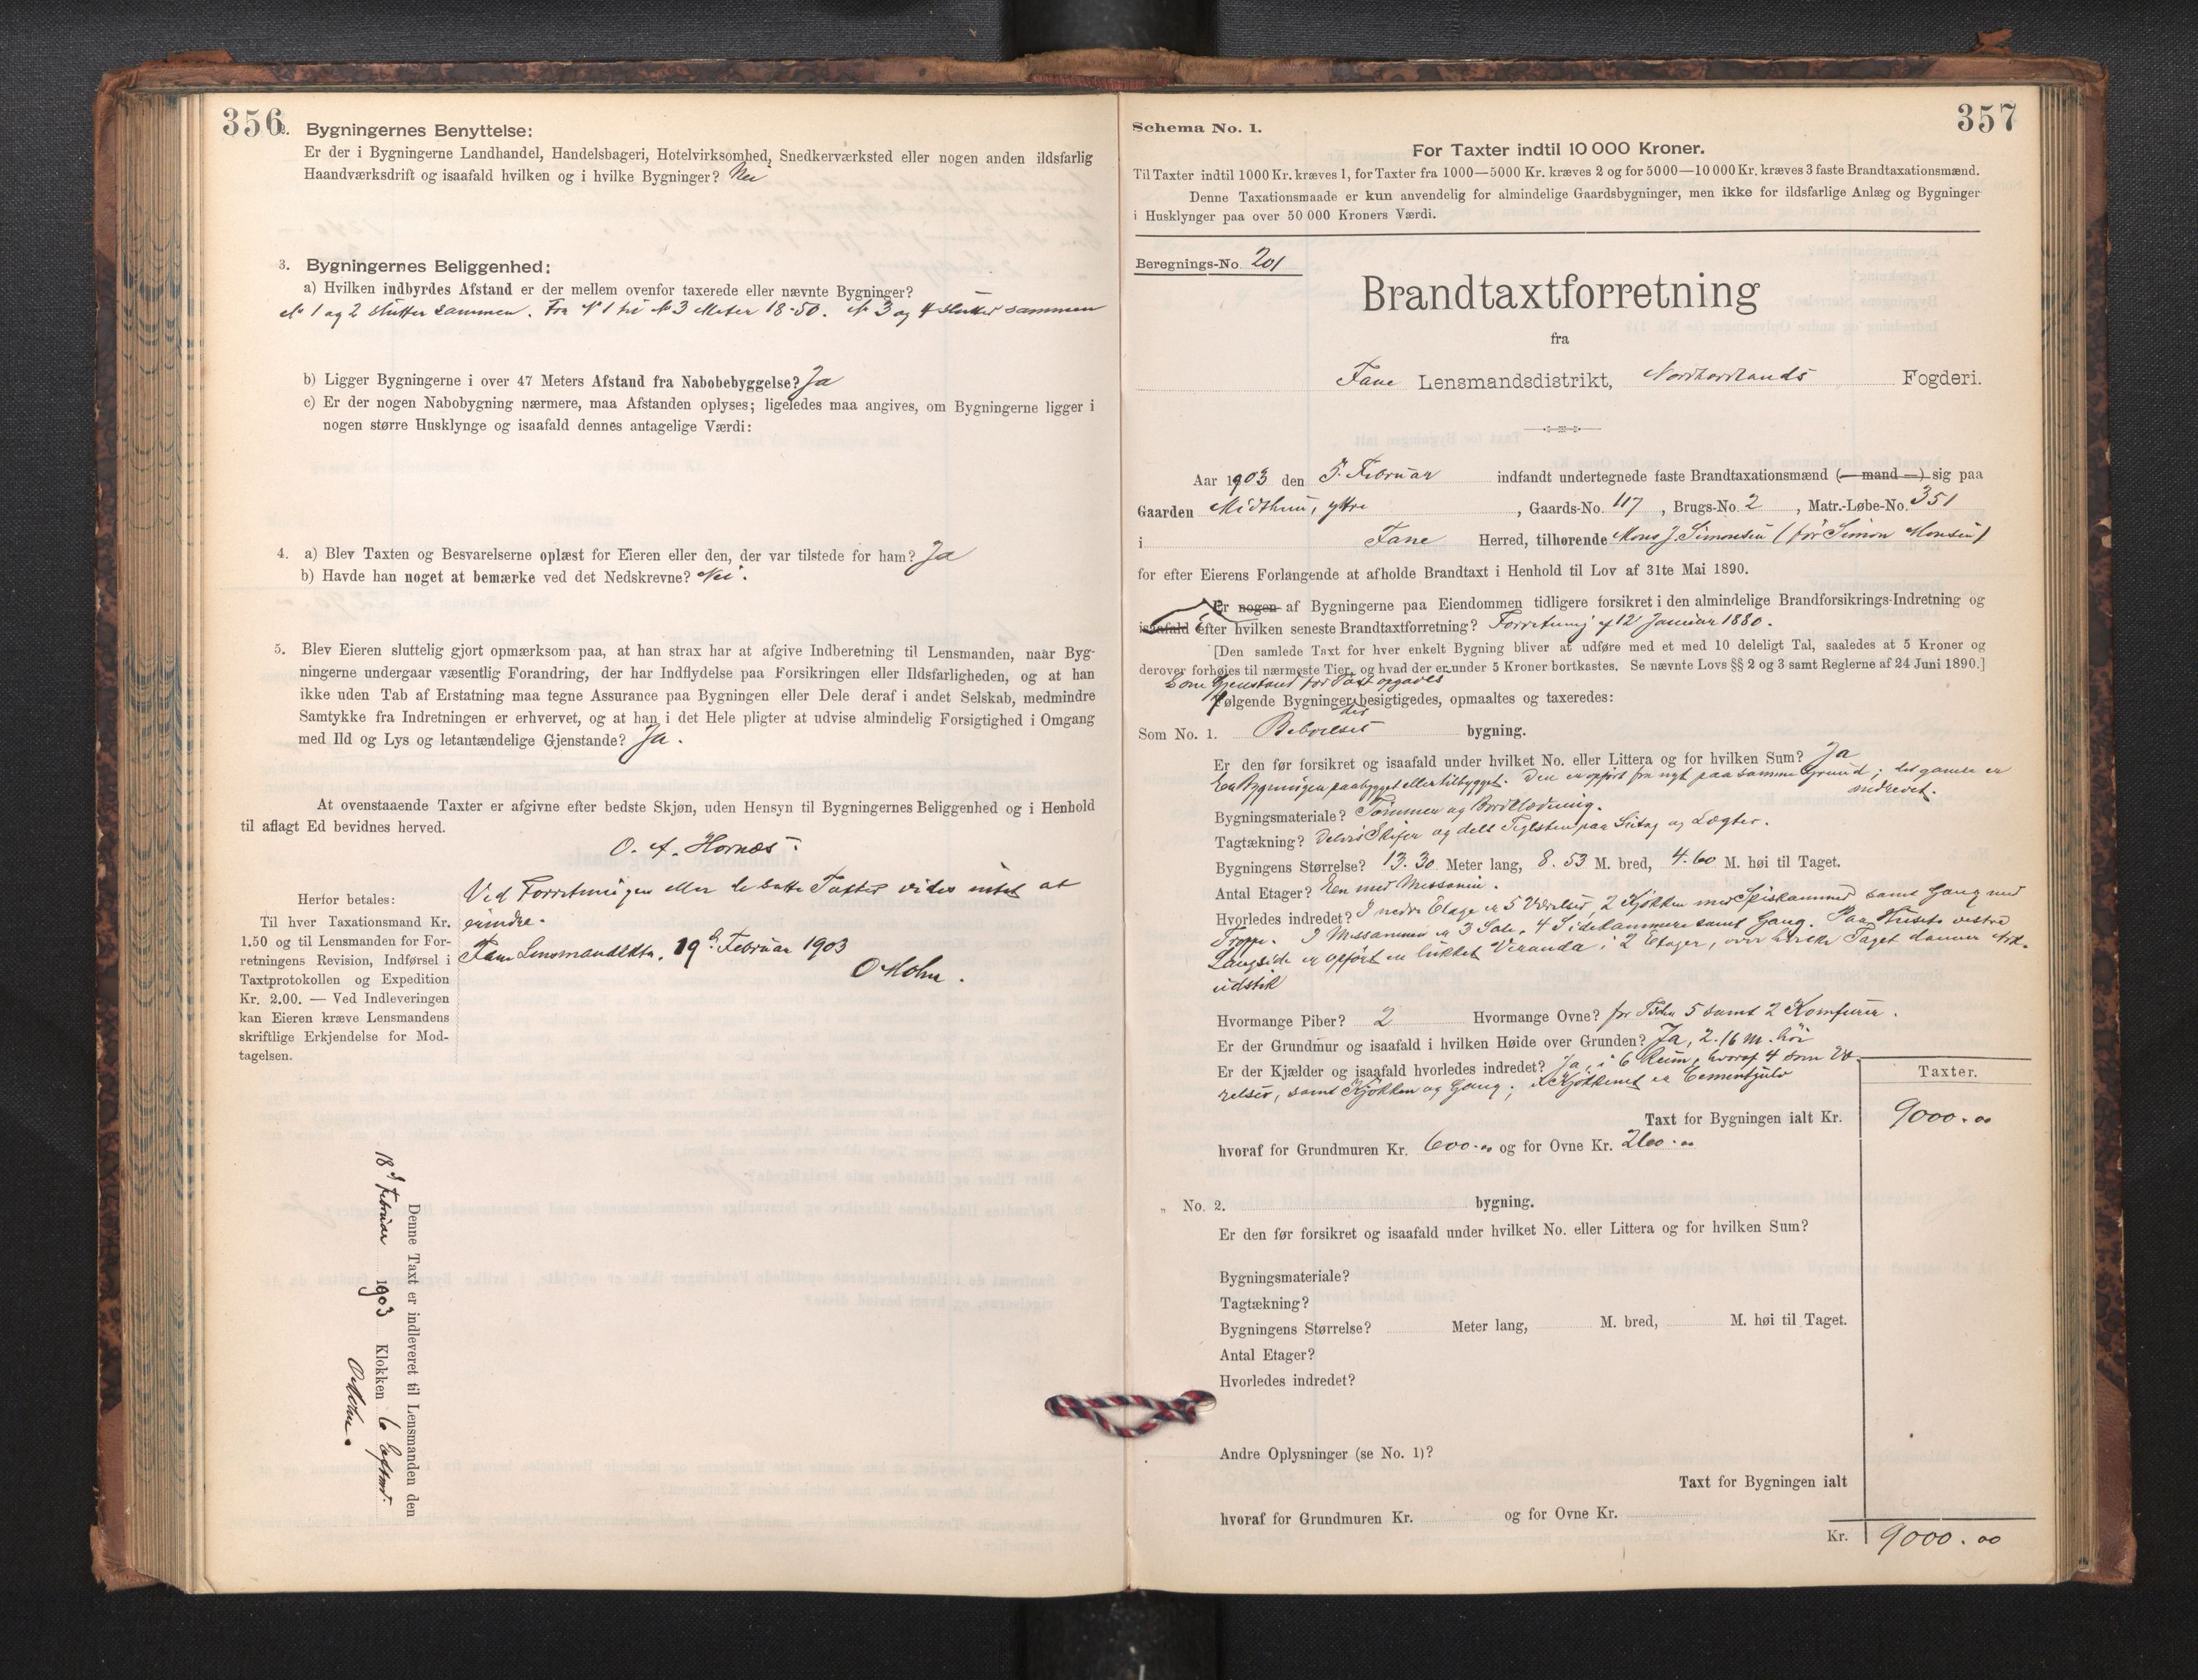 356
2. Bygningernes Benyttelse:
Er der i Bygningerne Landhandel, Handelsbageri, Hotelvirksomhed, Snedkerværksted eller nogen anden ildsfarlig
Haandværksdrift og isaafald hvilken og i hvilke Bygninger? Nei
3. Bygningernes Beliggenhed:
a) Hvilken indbyrdes Afstand er der mellem ovenfor taxerede eller nævnte Bygninger?
No 1 og 2 slutter sammen. Fra No 1 til No 3 Meter 18.50. No 3 og 4 slutter sammen
b) Ligger Bygningerne i over 47 Meters Afstand fra Nabobebyggelse? Ja
c) Er der nogen Nabobygning nærmere, maa Afstanden oplyses; ligeledes maa angives, om Bygningerne ligger i
nogen større Husklynge og isaafald dennes antagelige Værdi:
4. a) Blev Taxten og Besvarelserne oplæst for Eieren eller den, der var tilstede for ham? Ja
b) Havde han noget at bemærke ved det Nedskrevne? Nei.
5. Blev Eieren sluttelig gjort opmærksom paa, at han strax har at afgive Indberetning til Lensmanden, naar Byg-
ningerne undergaar væsentlig Forandring, der har Indflydelse paa Forsikringen eller Ildsfarligheden, og at han
ikke uden Tab af Erstatning maa tegne Assurance paa Bygningen eller Dele deraf i andet Selskab, medmindre
Samtykke fra Indretningen er erhvervet, og at han i det Hele pligter at udvise almindelig Forsigtighed i Omgang
med Ild og Lys og letantændelige Gjenstande? Ja.
At ovenstaaende Taxter er afgivne efter bedste Skjøn, uden Hensyn til Bygningernes Beliggenhed og i Henhold
til aflagt Ed bevidnes herved.
O. A. Hornæs.
Herfor betales:
Til hver Taxationsmand Kr.
1.50 og til Lensmanden for For-
retningens Revision, Indførsel i
Taxtprotokollen og Expedition
Kr. 2.00. — Ved Indleveringen
kan Eieren kræve Lensmandens
skriftlige Erkjendelse for Mod-
tagelsen.
Ved Forretningen eller de satte Taxter vides intet at
erindre.
Fane Lensmandsktr. 19 Februar 1903
O Holm.
Denne Taxt er indleveret til Lensmanden den
18 Februar 1903 Klokken 6 Eftmd.
O Holm.
357
Schema No. 1.
For Taxter indtil 10 000 Kroner.
Til Taxter indtil 1000 Kr. kræves 1, for Taxter fra 1000—5000 Kr. kræves 2 og for 5000—10 000 Kr. kræves 3 faste Brandtaxationsmænd.
Denne Taxationsmaade er kun anvendelig for almindelige Gaardsbygninger, men ikke for ildsfarlige Anlæg og Bygninger
i Husklynger paa over 50 000 Kroners Værdi.
Beregnings-No. 201
Brandtaxtforretning
fra
Fane Lensmandsdistrikt, Nordhordlands Fogderi.
Aar 1903 den 5. Februar indfandt undertegnede faste Brandtaxationsmænd (— mand —) sig paa
Gaarden Midthun, ytre, Gaards-No. 117, Brugs-No. 2, Matr.-Løbe-No. 351
i Fane Herred, tilhørende Mons J. Simonsen (før Simon Monsen)
for efter Eierens Forlangende at afholde Brandtaxt i Henhold til Lov af 31te Mai 1890.
Er nogen af Bygningerne paa Eiendommen tidligere forsikret i den almindelige Brandforsikrings-Indretning og
isaafald efter hvilken seneste Brandtaxtforretning? Forretning af 12 Januar 1880.
[Den samlede Taxt for hver enkelt Bygning bliver at udføre med et med 10 deleligt Tal, saaledes at 5 Kroner og
derover forhøies til nærmeste Tier, og hvad der er under 5 Kroner bortkastes. Se nævnte Lovs §§ 2 og 3 samt Reglerne af 24 Juni 1890.]
Som Gjenstand for Taxt opgaves
Følgende Bygninger der besigtigedes, opmaaltes og taxeredes:
Som No. 1. Beboelses bygning.
Er den før forsikret og isaafald under hvilket No. eller Littera og for hvilken Sum? Ja
Er Bygningen paabygget eller tilbygget. Den er opført fra nyt paa samme Grund; det gamle er
nedrevet.
Bygningsmateriale? Tømmer og Bordklædning.
Tagtækning? Delvis Skifer og dels Teglsten paa Sutag og Lægter.
Bygningens Størrelse? 13.30 Meter lang, 8.53 M. bred, 4.60 M. høi til Taget.
Antal Etager? Een med Messanin.
Hvorledes indredet? I nedre Etage er 5 Værelser, 2 Kjøkken med Spiskammer samt Gang med
Trappe. I Messaninen er 3 Sale, 4 Sidekammere samt Gang. Paa Husets vestre
Langside er opført en lukket Veranda i 2 Etager, over hvilke Taget danner Ark-
udstik
Hvormange Piber? 2 Hvormange Ovne? for Tiden 5 samt 2 Komfurer.
Er der Grundmur og isaafald i hvilken Høide over Grunden? Ja, 2.16 m. høi
Er der Kjælder og isaafald hvorledes indredet? Ja, i 6 Rum, hvoraf 4 som Væ-
relser, samt Kjøkken og Gang; i Kjøkkenet er Cementgulv
Taxter.
Taxt for Bygningen ialt Kr. 9000.00
hvoraf for Grundmuren Kr. 600.00 og for Ovne Kr. 260.00
„ No. 2. bygning.
Er den før forsikret og isaafald under hvilket No. eller Littera og for hvilken Sum?
Bygningsmateriale?
Tagtækning?
Bygningens Størrelse? Meter lang, M. bred, M. høi til Taget.
Antal Etager?
Hvorledes indredet?
Andre Oplysninger (se No. 1)?
Taxt for Bygningen ialt
hvoraf for Grundmuren Kr. og for Ovne Kr.
Kr. 9000.00